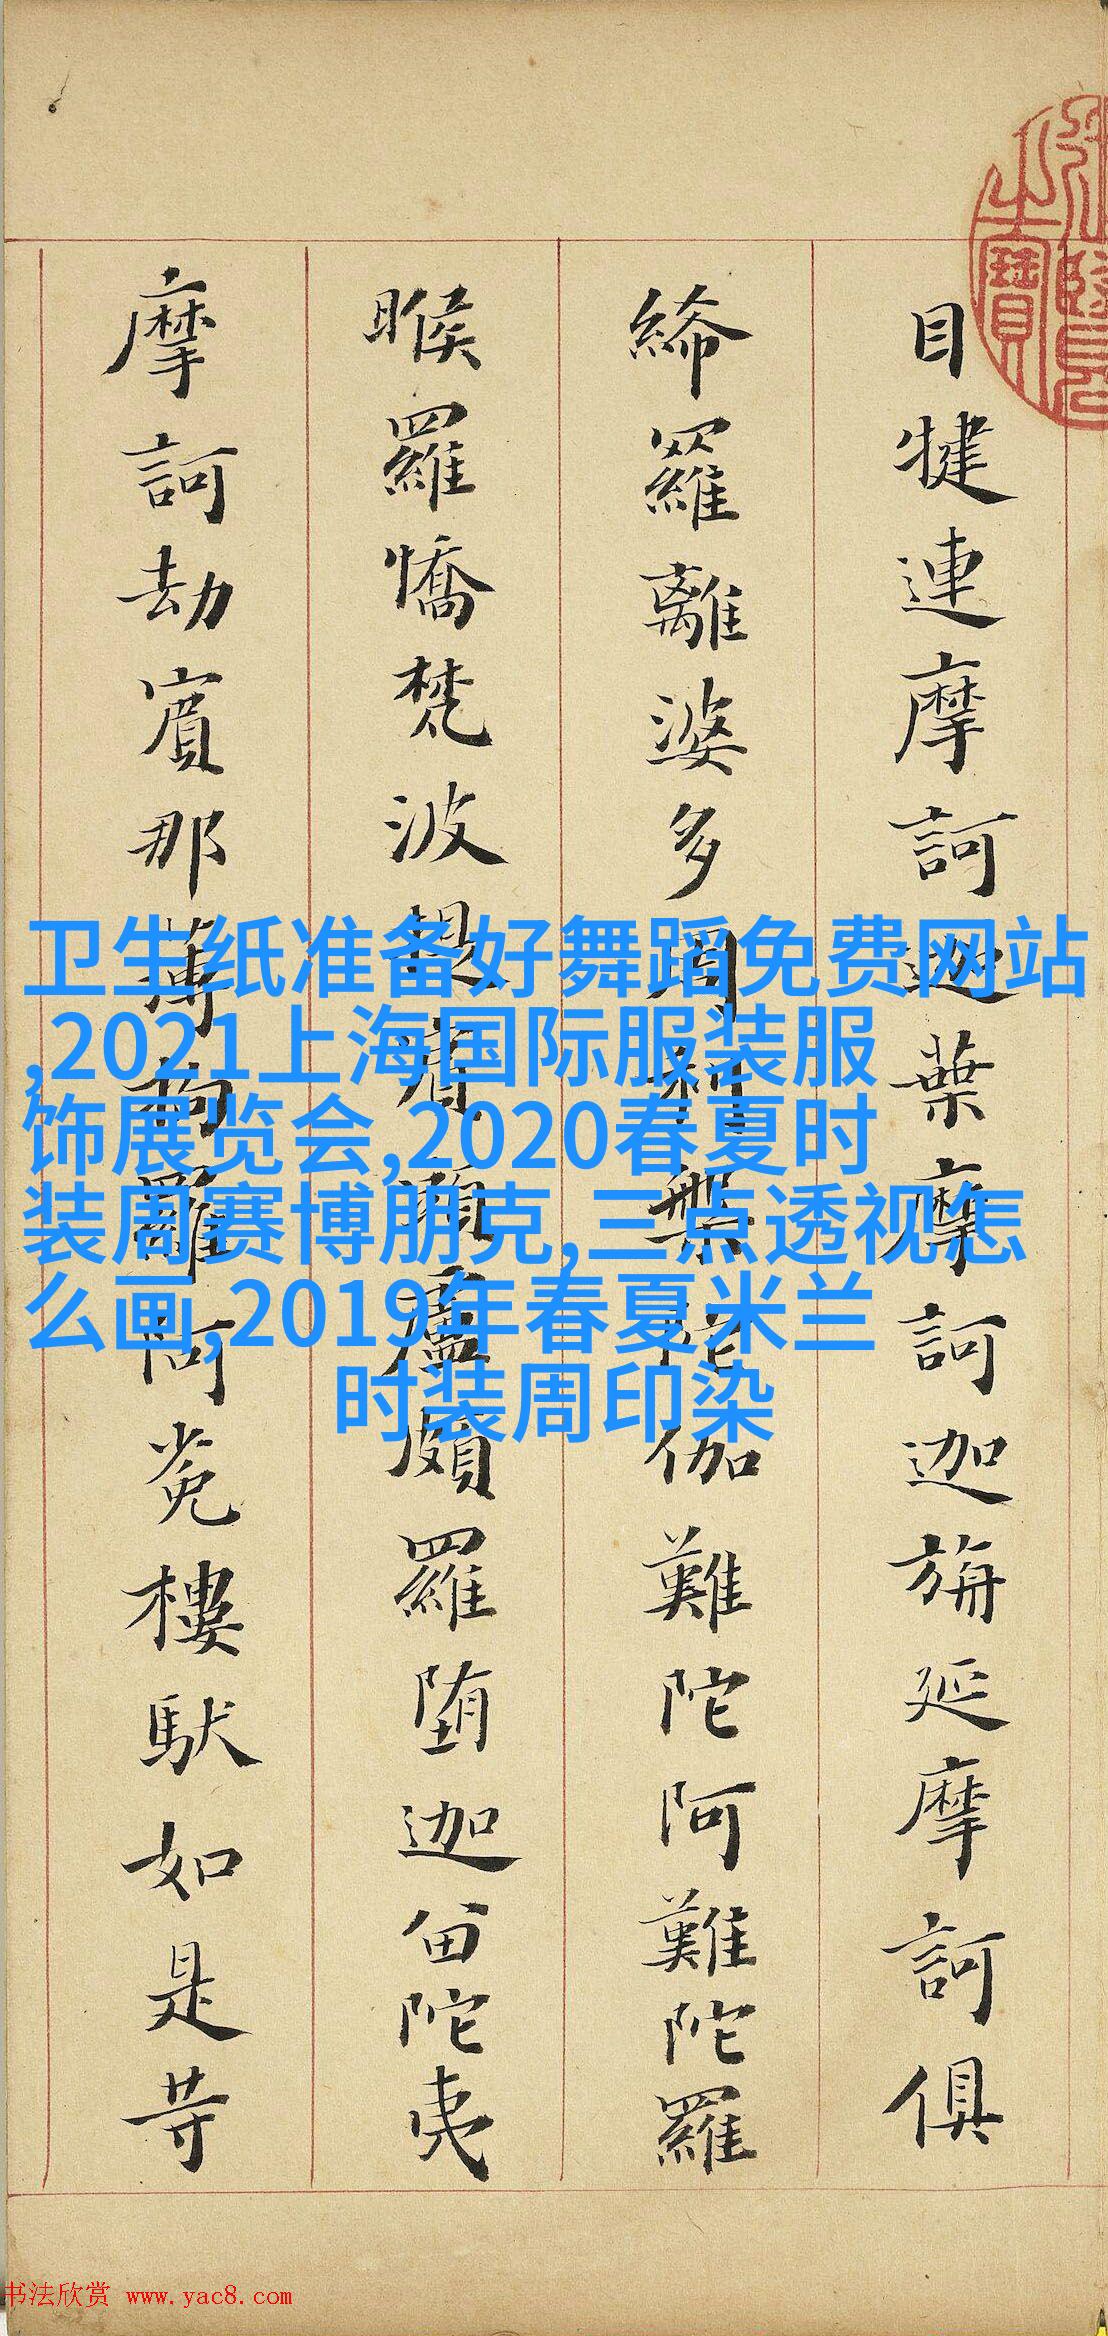 目犍連摩訶迦葉摩訶迦旃延摩訶俱
絺羅離婆多周利槃陀伽難陀阿難陀羅
睺羅憍梵波提賓頭盧頗羅堕迦留陀夷
摩訶劫賓那薄拘羅阿㝹樓馱如是等
卫生纸准备好舞蹈免费网站
,2021上海国际服装服
饰展览会,2020春夏时
装周赛博朋克,三点透视怎
么画,2019年春夏米兰
时装周印染
书法欣赏 www.yac8.com